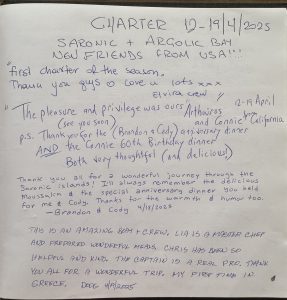 CHARTER 12-19/4/2025
SARONIC + ARGOLIC BAY
NEW FRIENDS FROM USA!!!
"first charter of the season.
Thank you guys & love u lots xxx
Elvira crew"
"The pleasure and privilege was ours"
(see you soon)
12-19 April
and Connie California
p.s. Thank you for the (Brandon & Cody) anniversary dinner
AND the Connie 60th Birthday dinner
Both very thoughtful (and delicious)
Thank you all for a wonderful journey through the
Saronic islands! I'll always remember the delicious
Moussaka & the special anniversary dinner you held
for me & Cody. Thanks for the warmth & humor too.
—Brandon & Cody
THIS IS AN AMAZING BOAT & CREW, LIA IS A MASTER CHEF
AND PREPARED WONDERFUL MEALS. CHRIS HAS BEEN SO
HELPFUL AND KIND. THE CAPTAIN IS A REAL PRO. THANK
YOU ALL FOR A WONDERFUL TRIP. MY FIRST TIME IN
GREECE. DOUG